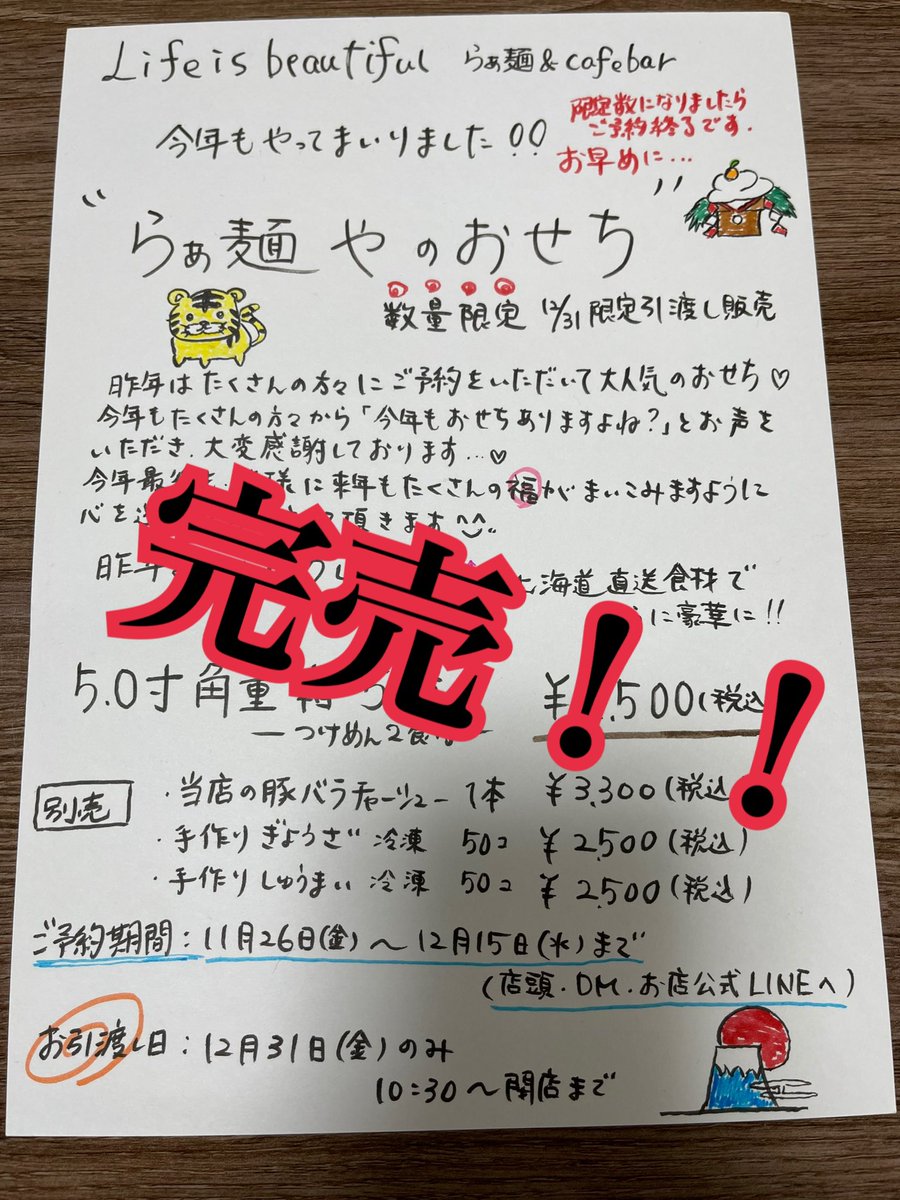 Life is beautiful らぁ麺&cafebar
限定数になりましたら
ご予約終るです.
お早めに...
今年もやってまいりました!!
"らぁ麺やのおせち"
数量限定 12/31限定引渡し販売
昨年はたくさんの方々にご予約をいただいて大人気のおせち♡
今年もたくさんの方々から「今年もおせちありますよね?」とお声を
いただき.大変感謝しております...♡
今年最 に来年もたくさんの福がまいこみますように
心を 頂きます^^..
昨年 海道直送食材で
に豪華に!!
完売!!
5.0寸角重 ¥ ,500(税込
ーつけめん2食
別売
・当店の豚バラチャーシュー 1本 ¥3,300(税込
・手作りぎょうざ 冷凍 50コ ¥2,500(税込)
・手作りしゅうまい 冷凍 50コ ¥2,500(税込)
ご予約期間:11月26日(金)~12月15日(水)まで
(店頭.DM.お店公式LINEへ)
お引渡し日:12月31日(金)のみ
10:30~開店まで